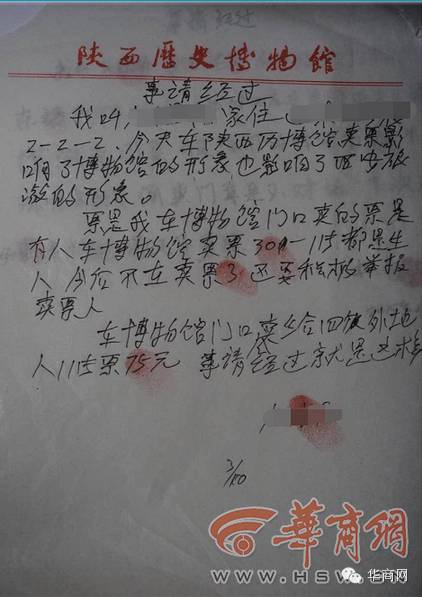 陕西歷史博物館
事请经过
我叫 家住
2-2-2. 今天在陕西历博馆卖票影
响了博物馆的形象也影响了西安旅
游的形象。
票是我在博物馆门口卖的票是
有人在博物馆卖票30一1张都是生
人 今后不在卖票了还要积极举报
卖票人
在博物馆门口卖给四位外地
人1张票75元 事请经过就是这样
3/10
華商網
www.HSW
华商网